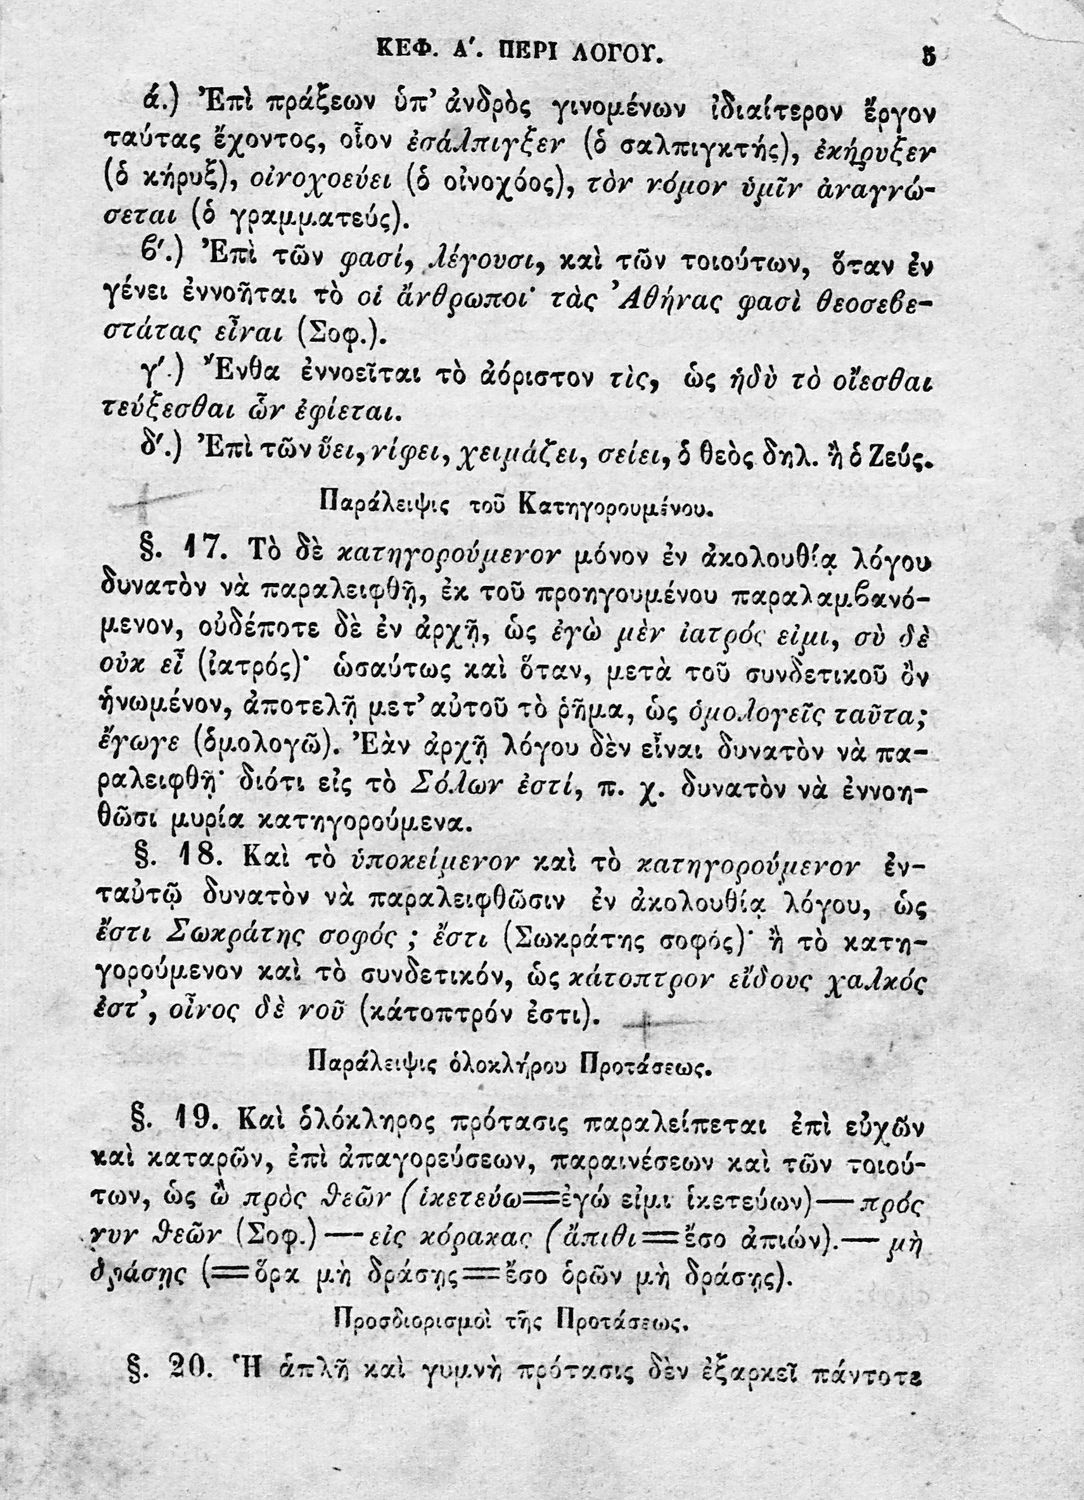 ΚΕΦ. Α΄. ΠΕΡΙ ΛΟΓΟΥ. 5
ά.) Ἐπὶ πράξεων ὑπ’ ἀνδρὸς γινομένων ἰδιαίτερον ἔργον
ταύτας ἔχοντος, οἷον ἐσάλπιγξεν (ὁ σαλπιγκτής), ἐκήρυξεν
(ὁ κήρυξ), οἰνοχοεύει (ὁ οἰνοχόος), τὸν νόμον ὑμῖν ἀναγνώ-
σεται (ὁ γραμματεύς).
ϐ΄.) Ἐπὶ τῶν φασί, λέγουσι, καὶ τῶν τοιούτων, ὅταν ἐν
γένει ἐννοῆται τὸ οἱ ἄνθρωποι· τὰς Ἀθήνας φασὶ θεοσεϐε-
στάτας εἶναι (Σοφ.).
γ΄.) Ἔνθα ἐννοεῖται τὸ ἀόριστον τὶς, ὡς ἡδὺ τὸ οἴεσθαι
τεύξεσθαι ὧν ἐφίεται.
δ΄.) Ἐπὶ τῶν ὕει, νίφει, χειμάζει, σείει, ὁ θεὸς δηλ. ἢ ὁ Ζεύς.
Παράλειψις τοῦ Κατηγορουμένου.
§. 17. Τὸ δὲ κατηγορούμενον μόνον ἐν ἀκολουθίᾳ λόγου
δυνατὸν νὰ παραλειφθῇ, ἐκ τοῦ προηγουμένου παραλαμϐανό-
μενον, οὐδέποτε δὲ ἐν ἀρχῇ, ὡς ἐγὼ μὲν ἰατρός εἰμι, σὺ δὲ
οὐκ εἶ (ἰατρός)· ὡσαύτως καὶ ὅταν, μετὰ τοῦ συνδετικοῦ ὂν
ἡνωμένον, ἀποτελῇ μετ’ αὐτοῦ τὸ ῥῆμα, ὡς ὁμολογεῖς ταῦτα;
ἔγωγε (ὁμολογῶ). Ἐὰν ἀρχῇ λόγου δὲν εἶναι δυνατὸν νὰ πα-
ραλειφθῇ· διότι εἰς τὸ Σόλων ἐστί, π. χ. δυνατὸν νὰ ἐννοη-
θῶσι μυρία κατηγορούμενα.
§. 18. Καὶ τὸ ὑποκείμενον καὶ τὸ κατηγορούμενον ἐν-
ταὐτῷ δυνατὸν νὰ παραλειφθῶσιν ἐν ἀκολουθίᾳ λόγου, ὡς
ἔστι Σωκράτης σοφός ; ἔστι (Σωκράτης σοφός)· ἢ τὸ κατη-
γορούμενον καὶ τὸ συνδετικόν, ὡς κάτοπτρον εἴδους χαλκός
ἐστ’, οἶνος δὲ νοῦ (κάτοπτρόν ἐστι).
Παράλειψις ὁλοκλήρου Προτάσεως.
§. 19. Καὶ ὁλόκληρος πρότασις παραλείπεται ἐπὶ εὐχῶν
καὶ καταρῶν, ἐπὶ ἀπαγορεύσεων, παραινέσεων καὶ τῶν τοιού-
των, ὡς ὢ πρὸς θεῶν (ἱκετεύω=ἐγώ εἰμι ἱκετεύων)—πρός
νυν θεῶν (Σοφ.)—εἰς κόρακας (ἄπιθι=ἔσο ἀπιών).— μὴ
δράσῃς (=ὅρα μὴ δράσῃς=ἔσο ὁρῶν μὴ δράσῃς).
Προσδιορισμοὶ τῆς Προτάσεως.
§. 20. Ἡ ἁπλῆ καὶ γυμνὴ πρότασις δὲν ἐξαρκεῖ πάντοτε